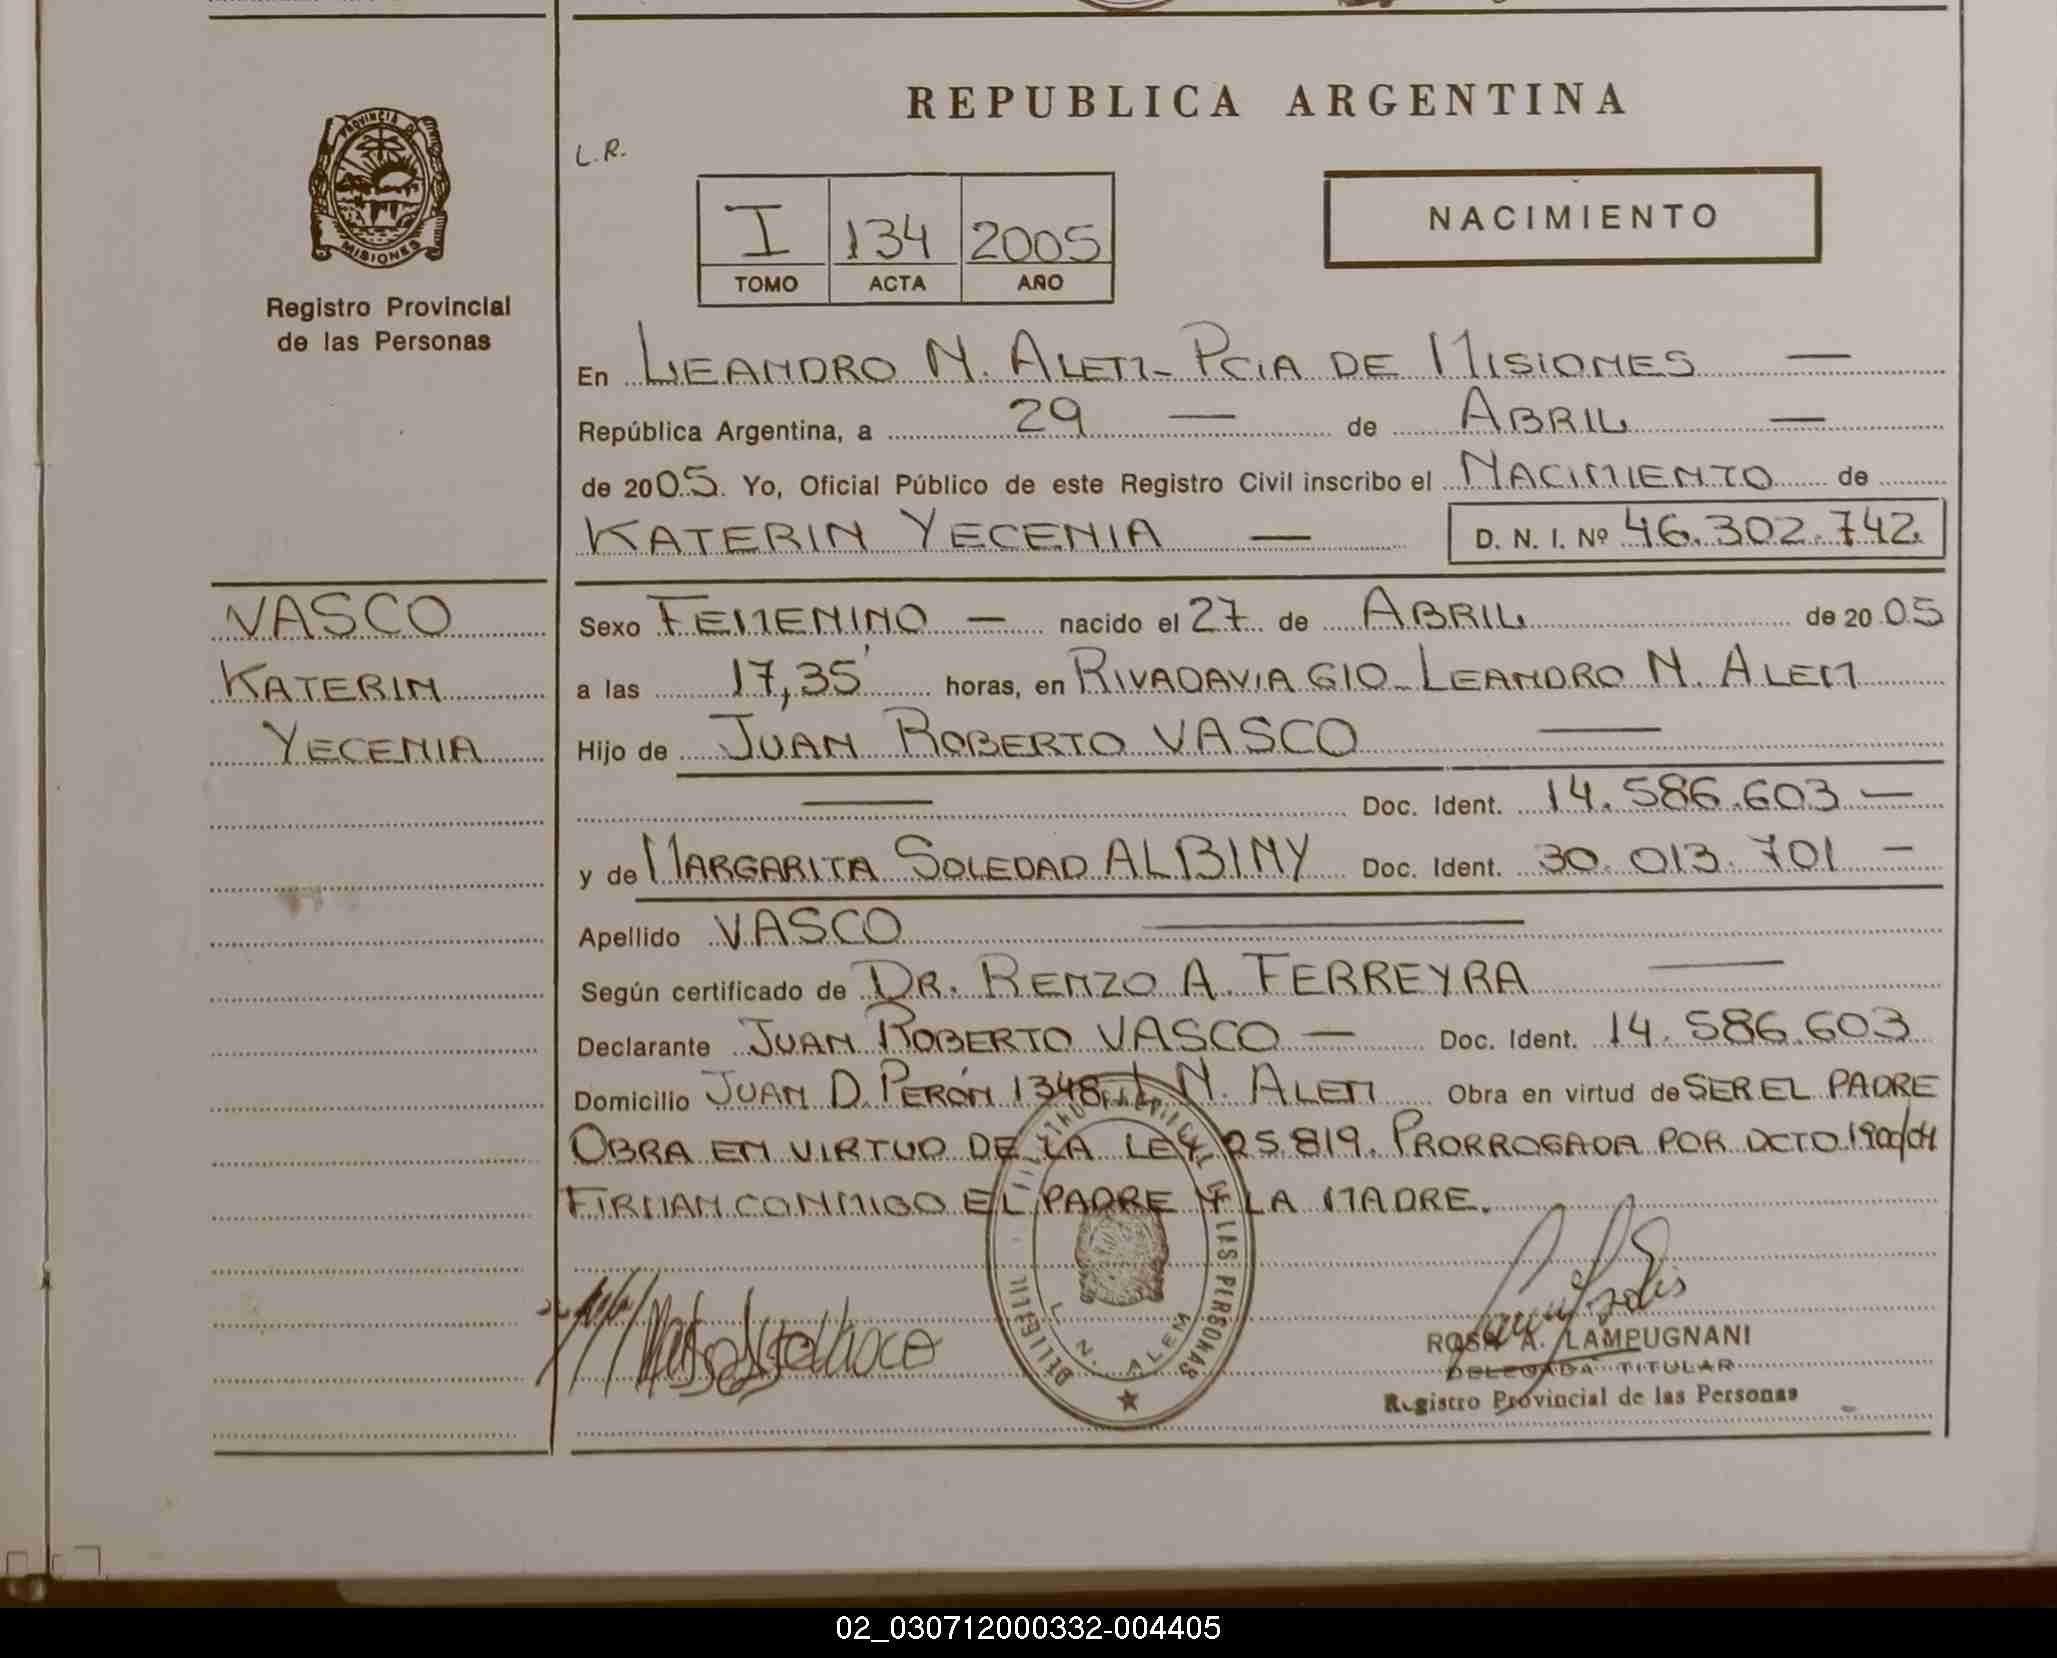 REPUBLICA ARGENTINA
PROVINCIA DE
MISIONES
Registro Provincial
de las Personas
L.R.
I 134 2005
TOMO ACTA AÑO
NACIMIENTO
En LEANDRO N. ALEM - PCIA DE MISIONES —
República Argentina, a 29 — de ABRIL —
de 2005. Yo, Oficial Público de este Registro Civil inscribo el NACIMIENTO de
KATERIN YECENIA — D. N. I. Nº 46.302.742.
VASCO
KATERIN
YECENIA
Sexo FEMENINO — nacido el 27 de ABRIL de 2005
a las 17,35' horas, en RIVADAVIA 610 - LEANDRO N. ALEM
Hijo de JUAN ROBERTO VASCO —
— Doc. Ident. 14.586.603 —
y de MARGARITA SOLEDAD ALBINY Doc. Ident. 30.013.701 —
Apellido VASCO —
Según certificado de DR. RENZO A. FERREYRA —
Declarante JUAN ROBERTO VASCO — Doc. Ident. 14.586.603
Domicilio JUAN D. PERÓN 1348 - L. N. ALEM Obra en virtud de SER EL PADRE
OBRA EN VIRTUD DE LA LEY 25.819. PRORROGADA POR DCTO. 1900/04
FIRMAN CONMIGO EL PADRE Y LA MADRE.
DE LAS PERSONAS
L. N. ALEM
ROSA A. LAMPUGNANI
DELEGADA TITULAR
Registro Provincial de las Personas
02_030712000332-004405